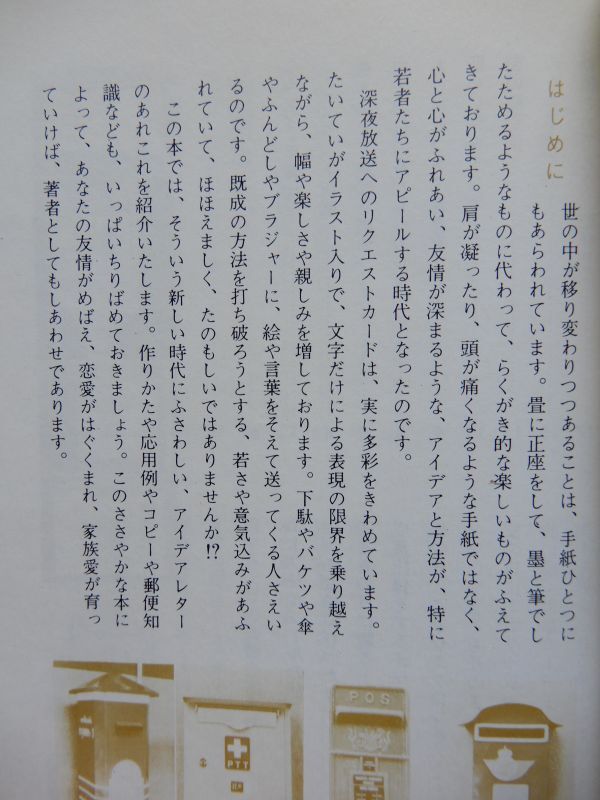 はじめに
世の中が移り変わりつつあることは、手紙ひとつに
もあらわれています。畳に正座をして、墨と筆でし
たためるようなものに代わって、らくがき的な楽しいものがふえて
きております。肩が凝ったり、頭が痛くなるような手紙ではなく、
心と心がふれあい、友情が深まるような、アイデアと方法が、特に
若者たちにアピールする時代となったのです。
深夜放送へのリクエストカードは、実に多彩をきわめています。
たいていがイラスト入りで、文字だけによる表現の限界を乗り越え
ながら、幅や楽しさや親しみを増しております。下駄やバケツや傘
やふんどしやブラジャーに、絵や言葉をそえて送ってくる人さえい
るのです。既成の方法を打ち破ろうとする、若さや意気込みがあふ
れていて、ほほえましく、たのもしいではありませんか!?
この本では、そういう新しい時代にふさわしい、アイデアレター
のあれこれを紹介いたします。作りかたや応用例やコピーや郵便知
識なども、いっぱいちりばめておきましょう。このささやかな本に
よって、あなたの友情がめばえ、恋愛がはぐくまれ、家族愛が育っ
ていけば、著者としてもしあわせであります。
PTT
POS